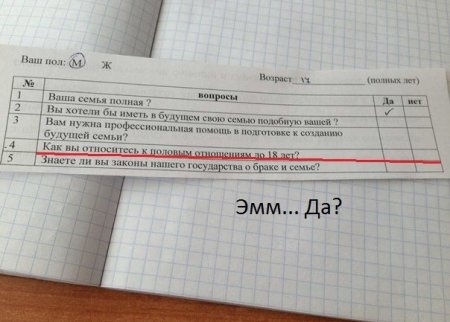 Ваш пол: М Ж
Возраст (полных лет)
№ вопросы Да нет
1 Ваша семья полная ?
2 Вы хотели бы иметь в будущем свою семью подобную вашей ? ✓
3 Вам нужна профессиональная помощь в подготовке к созданию
будущей семьи?
4 Как вы относитесь к половым отношениям до 18 лет?
5 Знаете ли вы законы нашего государства о браке и семье?
Эмм... Да?